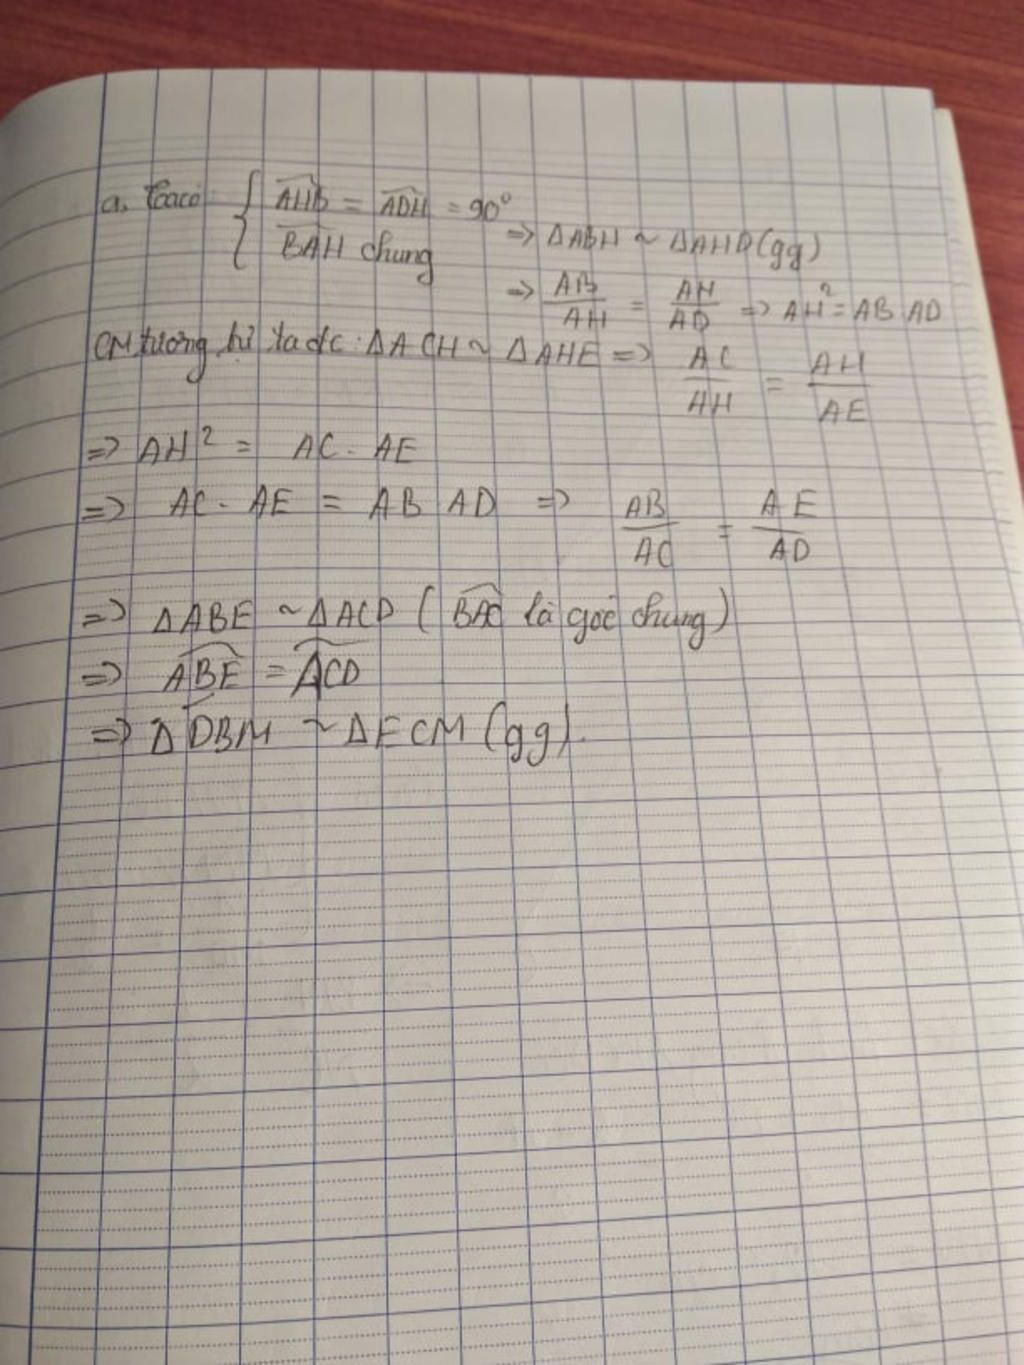 a, Ta có { AHB = ADH = 90°
BAH chung => ΔABH ~ ΔAHD (gg)
=> AB/AH = AH/AD => AH² = AB.AD
CM tương tự ta đc: ΔACH ~ ΔAHE => AC/AH = AH/AE
=> AH² = AC . AE
=> AC . AE = AB AD => AB/AC = AE/AD
=> ΔABE ~ ΔACD ( BAC là góc chung)
=> ABE = ACD
=> ΔDBM ~ ΔECM (gg).